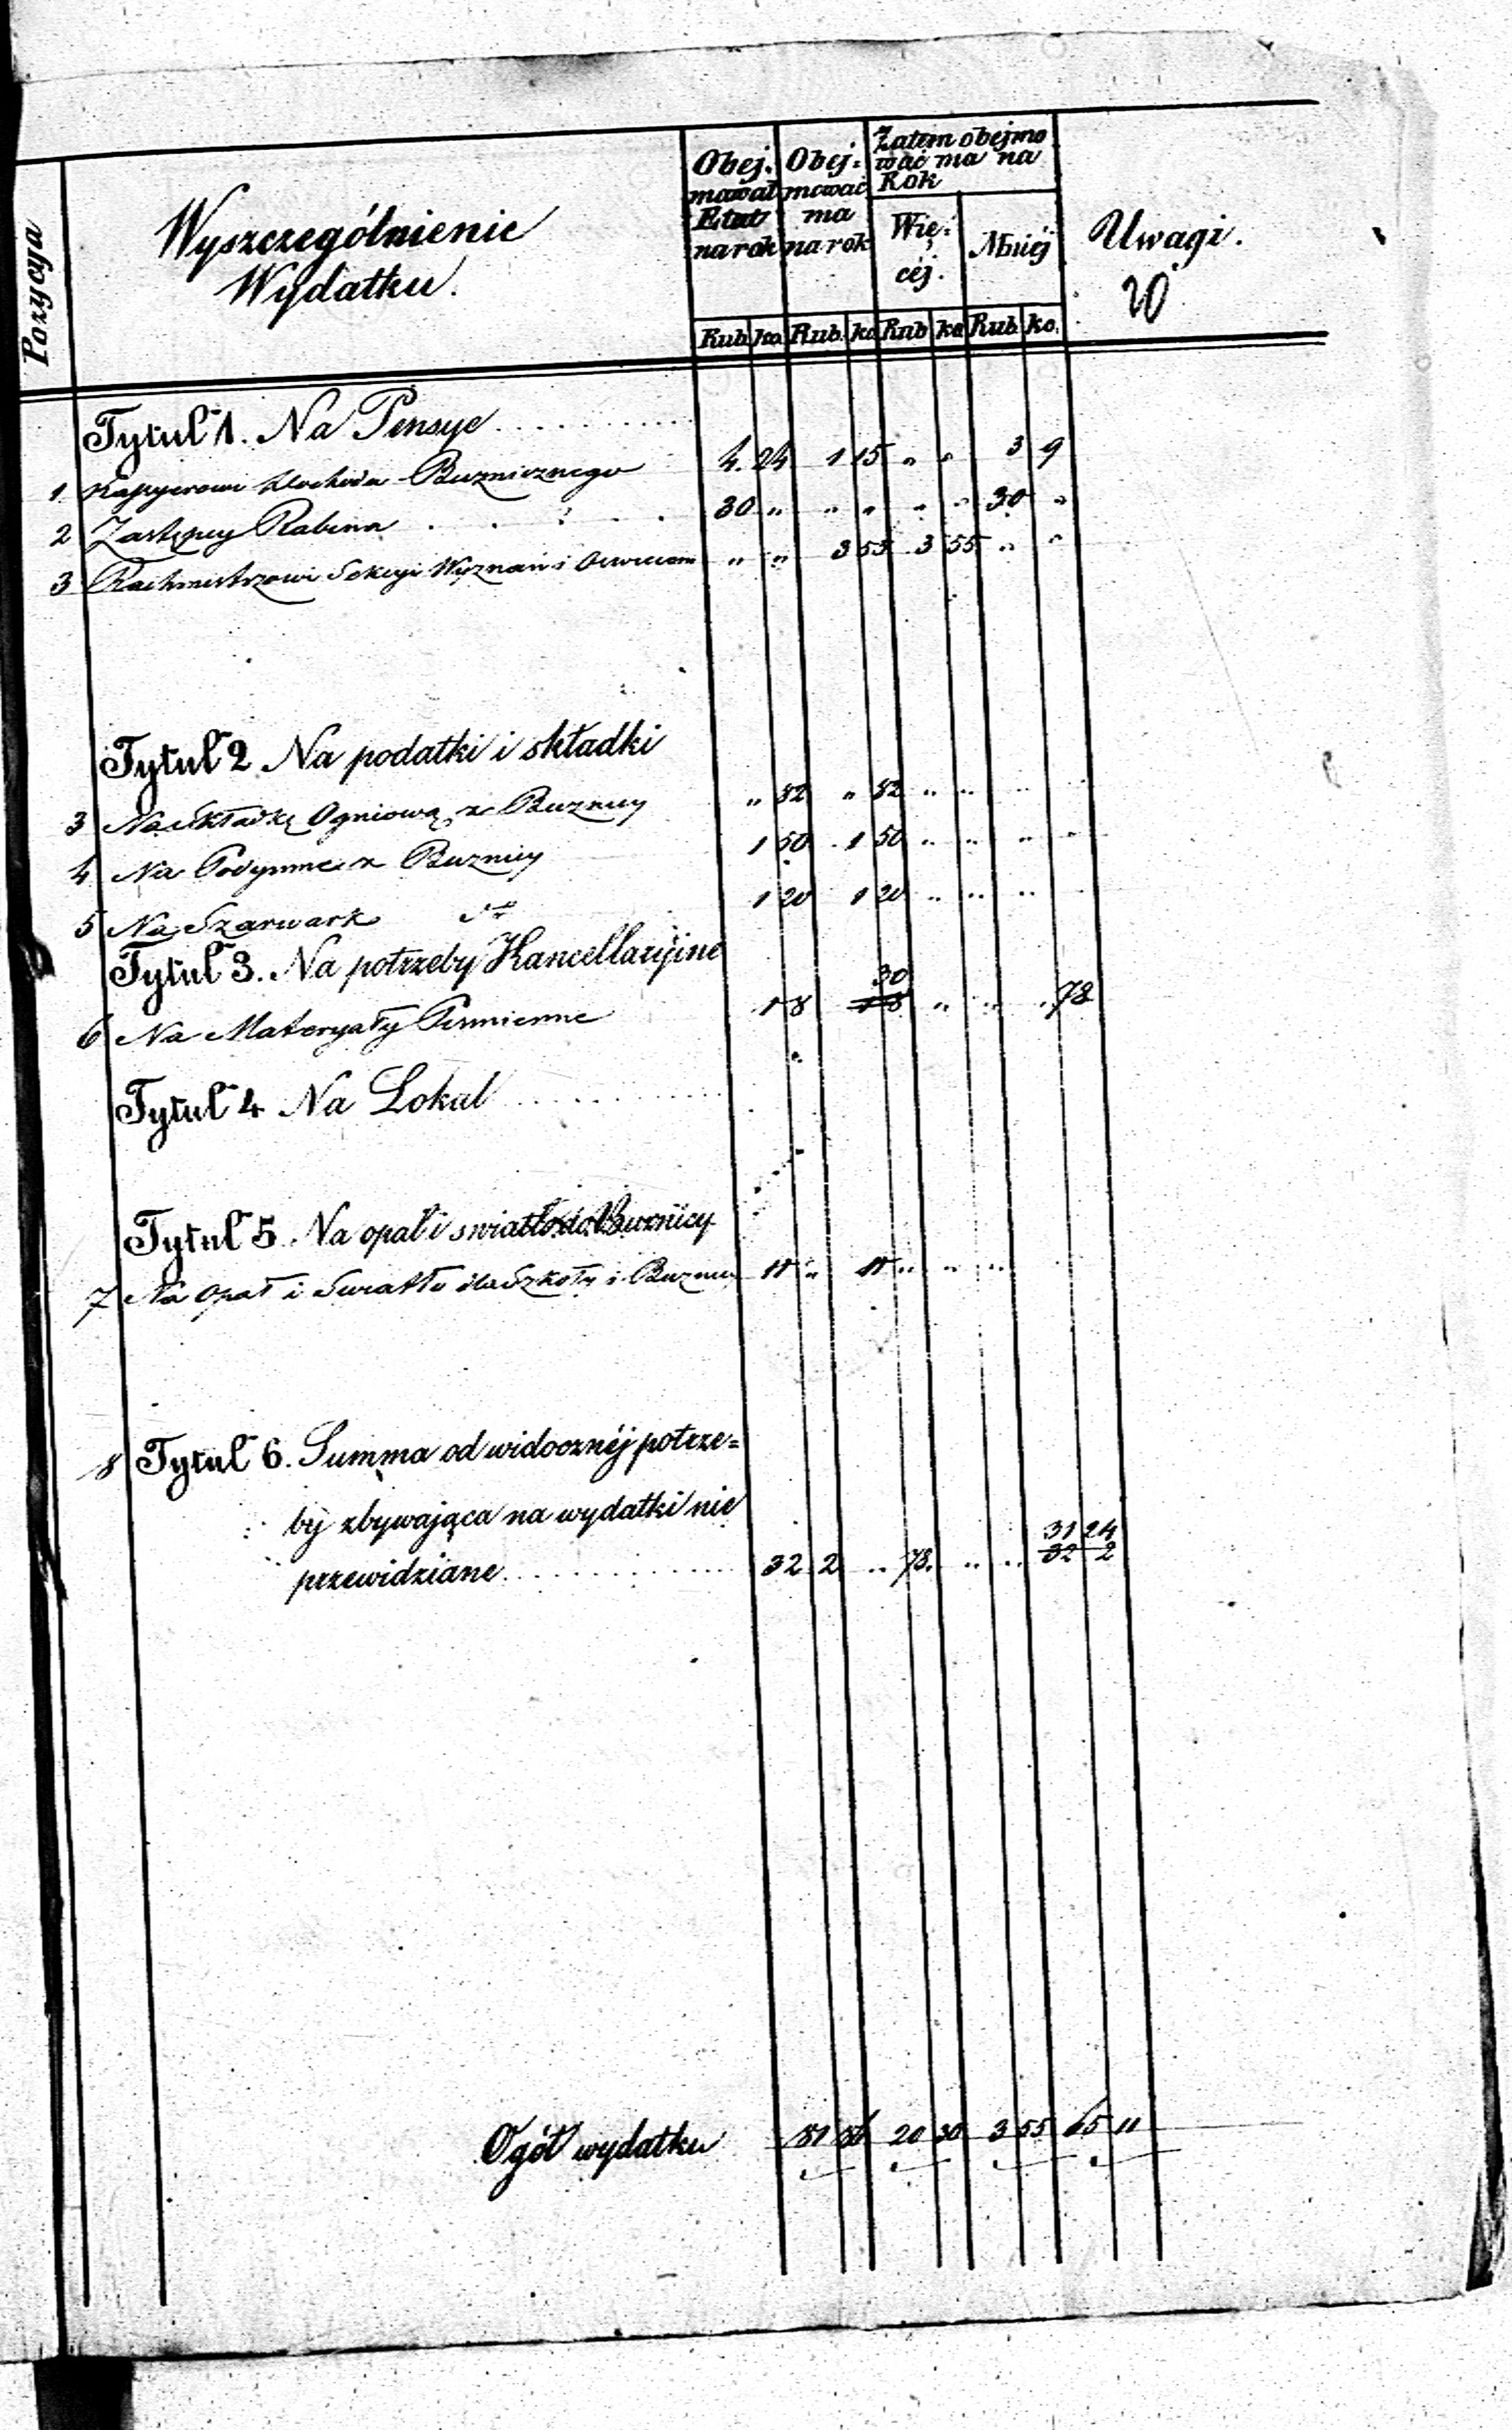 Pozycya
Wyszczególnienie
Wydatku.
Obej-
mował
Etat
na rok
Obej-
mować
ma
na rok
Zatem obejmo
wać ma na
Rok
Wię-
céj.
Mniéj
Uwagi.
20
Rub. ko. Rub. ko Rub ko Rub. ko.
Tytuł 1. Na Pensye
1 Kassyerowi Dochodu Buznicznego 4. 24 1 15 „ „ 3 9
2 Zastępcy Rabina 30 „ „ „ „ „ 30 „
3 Rachmistrzowi Sekcyi Wyznań i Oswiecen „ „ 3 55 3 55 „ „
Tytuł 2 Na podatki i składki
3 Na składkę Ogniową z Buznicy „ 82 „ 82 „ „ „ „
4 Na Podymne z Buznicy 1 50 1 50 „ „ „ „
5 Na Szarwark dto 1 20 1 20 „ „ „
Tytuł 3. Na potrzeby Kancellaryjne
30
6 Na Materyały Pismienne 1 8 1 8 „ „ „ 78
Tytuł 4 Na Lokal
Tytuł 5. Na opał i swiatło do Buznicy
7 Na Opał i Swiatło dla Szkoły i Buznicy 11 „ 11 „ „ „
8 Tytuł 6. Summa od widocznéj potrze=
by zbywająca na wydatki nie
31 24
przewidziane 32 2 „ 78. „ „ 32 2
Ogół wydatku 81 86 20 30 3 55 65 11